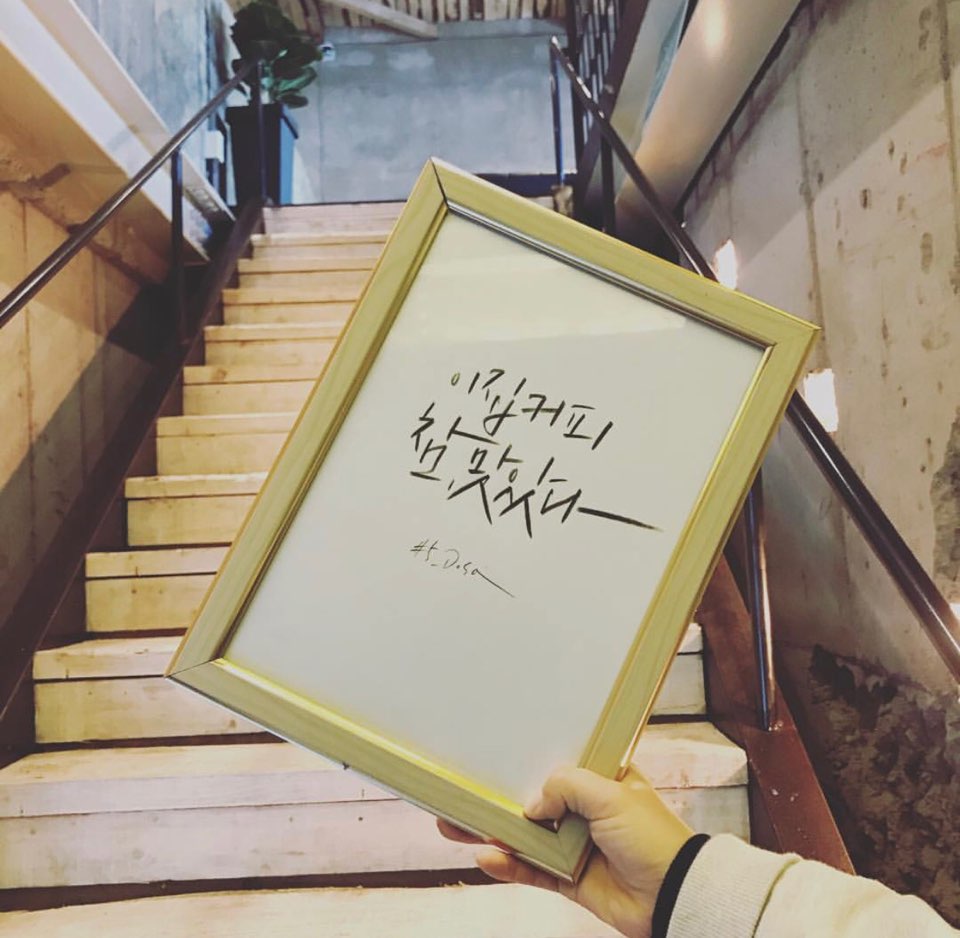 이 집 커피
참, 맛있다
#5_Dosa